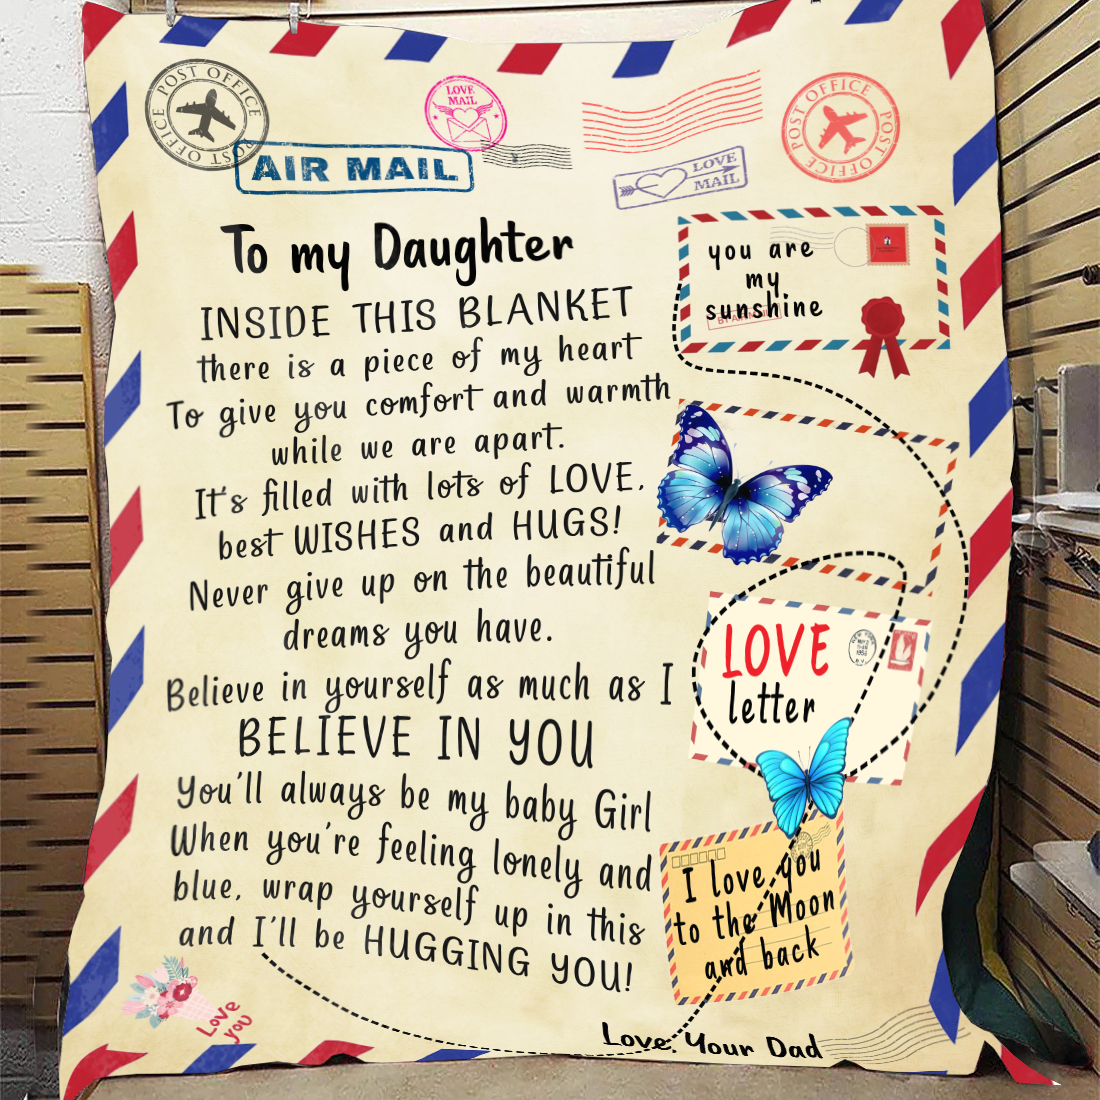 POST OFFICE
POST OFFICE
AIR MAIL
LOVE
MAIL
LOVE
MAIL
POST OFFICE
POST OFFICE
To my Daughter
INSIDE THIS BLANKET
there is a piece of my heart
To give you comfort and warmth
while we are apart.
It's filled with lots of LOVE,
best WISHES and HUGS!
Never give up on the beautiful
dreams you have.
Believe in yourself as much as I
BELIEVE IN YOU
You'll always be my baby Girl
When you're feeling lonely and
blue, wrap yourself up in this
and I'll be HUGGING YOU!
you are
my
sunshine
LOVE
letter
I love you
to the Moon
and back
Love
you
Love, Your Dad